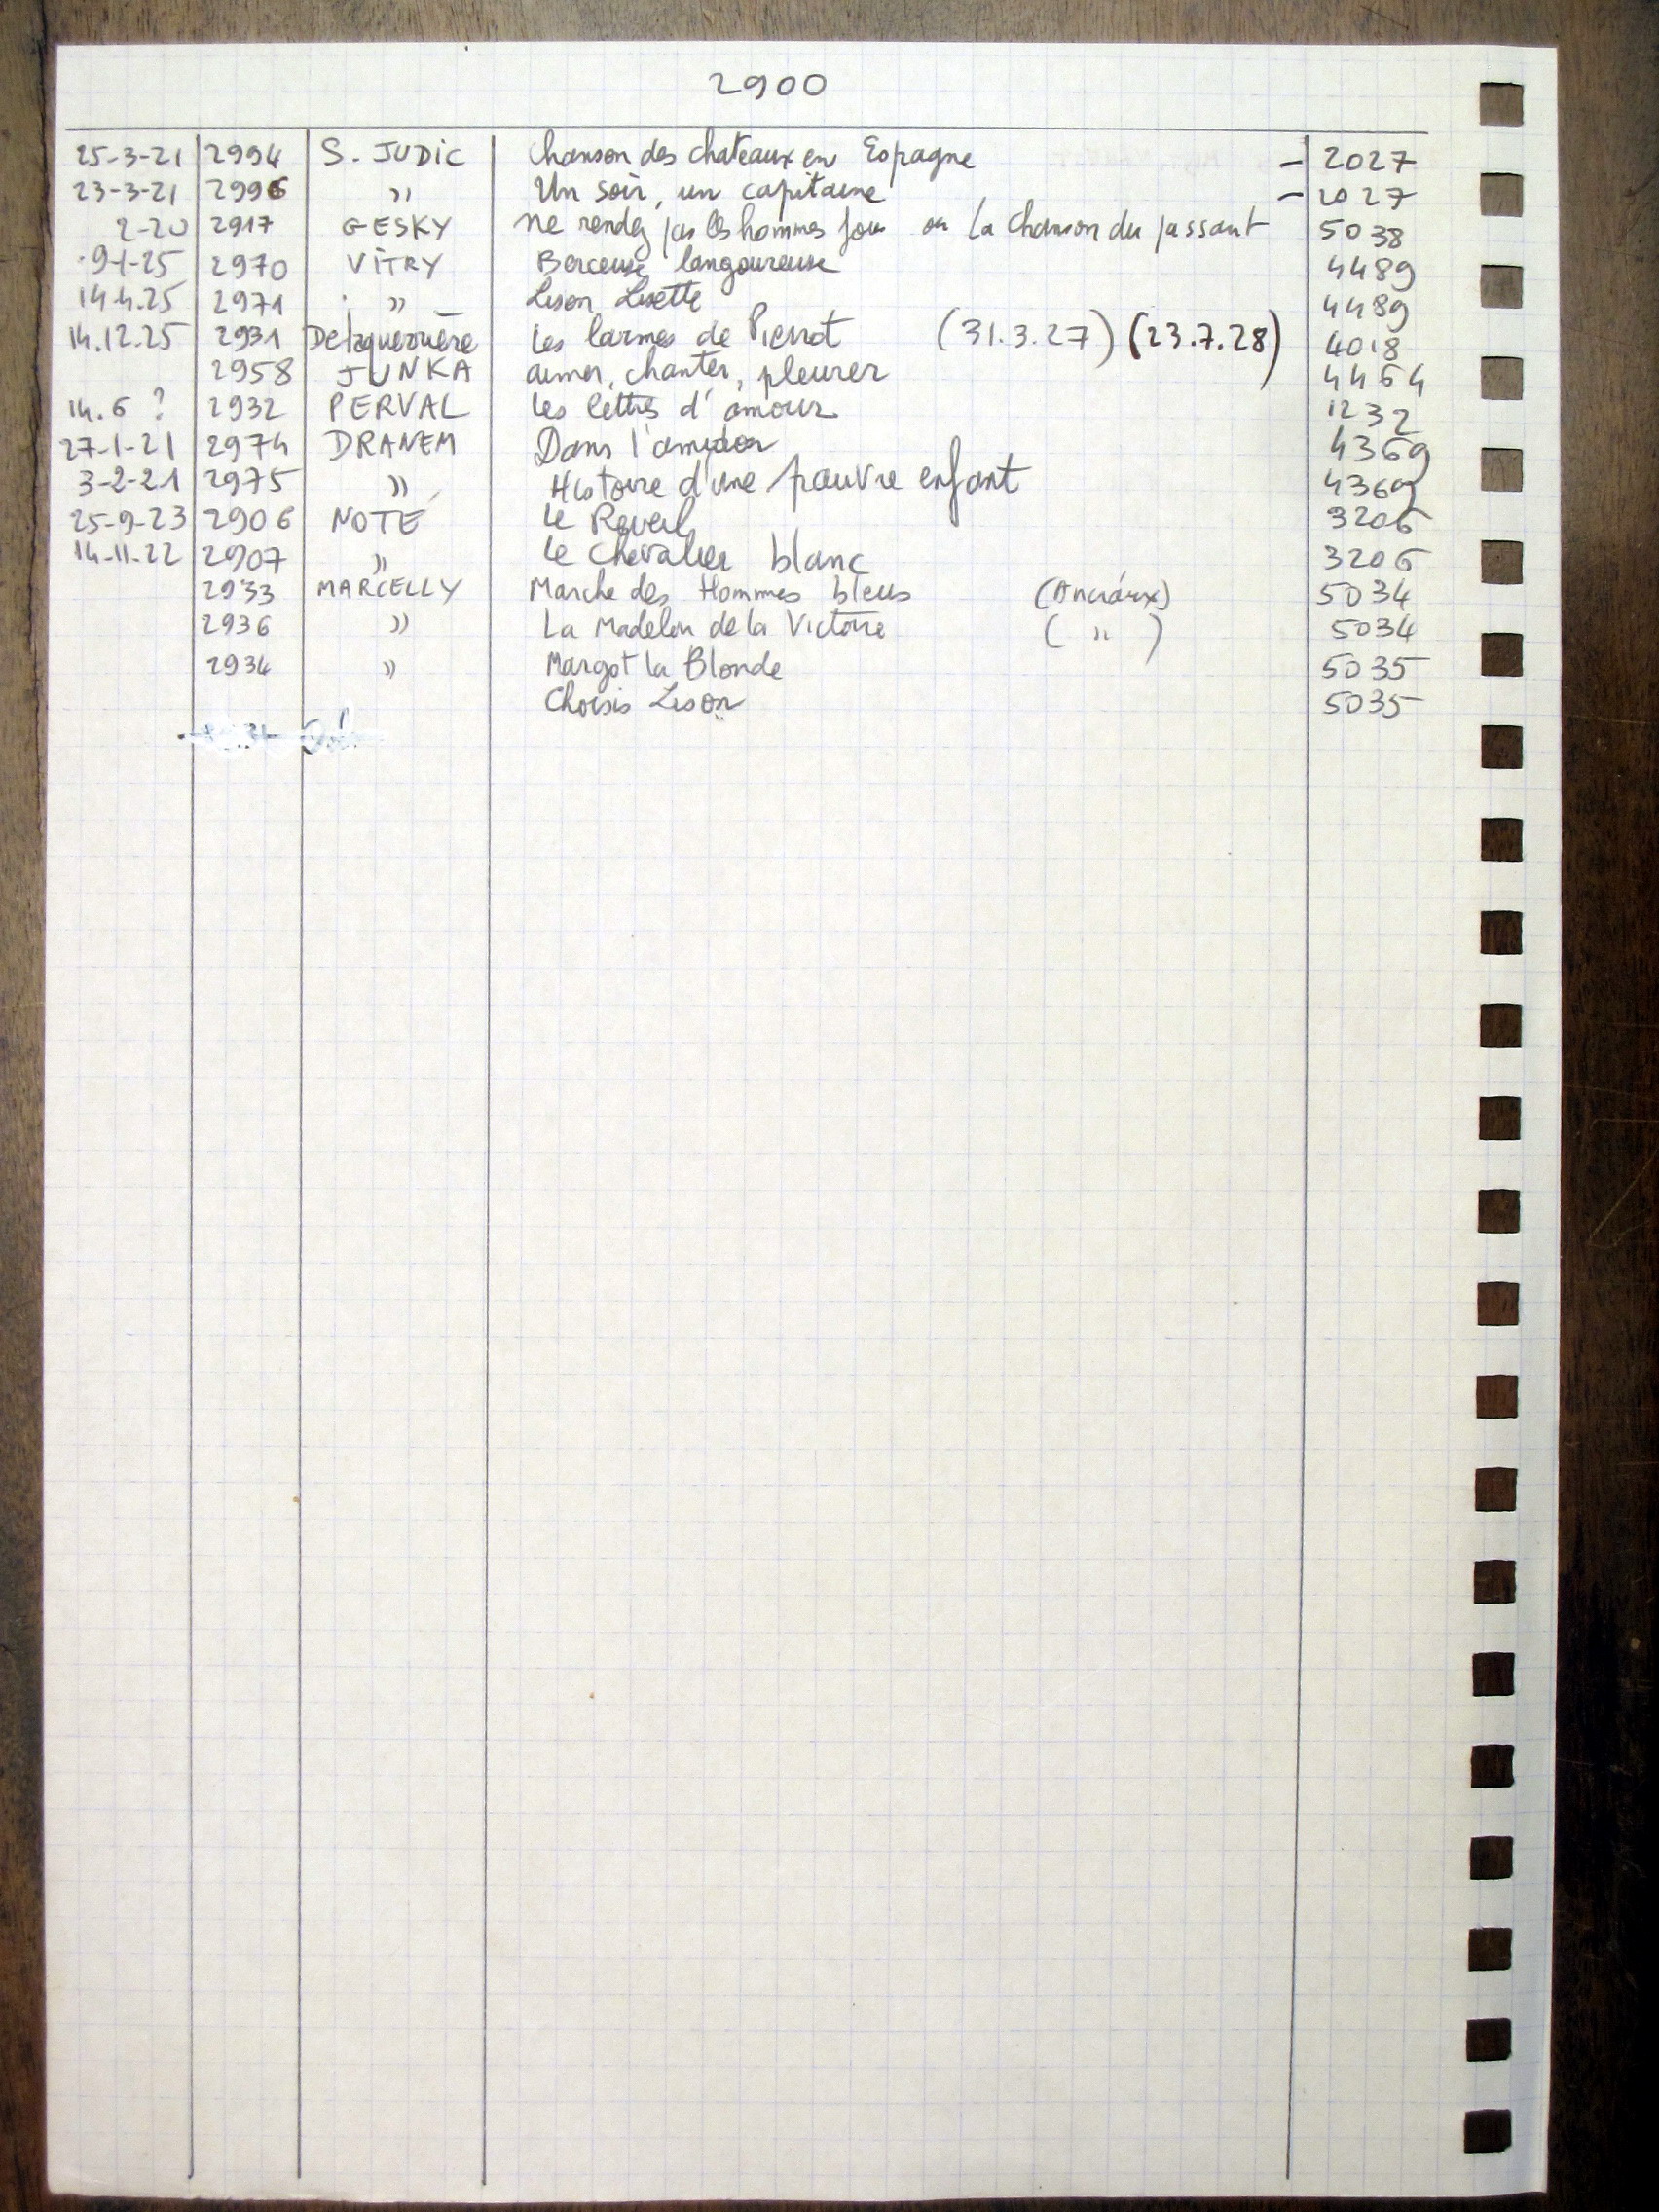 2900
25-3-21 2994 S. JUDIC Chanson des chateaux en Espagne - 2027
23-3-21 2996 " Un soir, un capitaine - 2027
2-20 2917 GESKY ne rendez pas les hommes fous ou La Chanson du passant 5038
9-1-25 2970 VITRY Berceuse langoureuse 4489
14.4.25 2971 " Lison Lisette 4489
14.12.25 2931 Delaquerrière Les larmes de Pierrot (31.3.27) (23.7.28) 4018
2958 JUNKA aimer, chanter, pleurer 4464
14.6 ? 2932 PERVAL Les lettres d'amour 1232
27-1-21 2974 DRANEM Dans l'amidon 4369
3-2-21 2975 " Histoire d'une pauvre enfant 4369
25-9-23 2906 NOTÉ Le Reveil 3206
14-11-22 2907 " Le Chevalier blanc 3206
2933 MARCELLY Marche des Hommes bleus 5034
2936 " La Madelon de la Victoire ( " ) 5034
2934 " Margot la Blonde 5035
Choisis Lison 5035